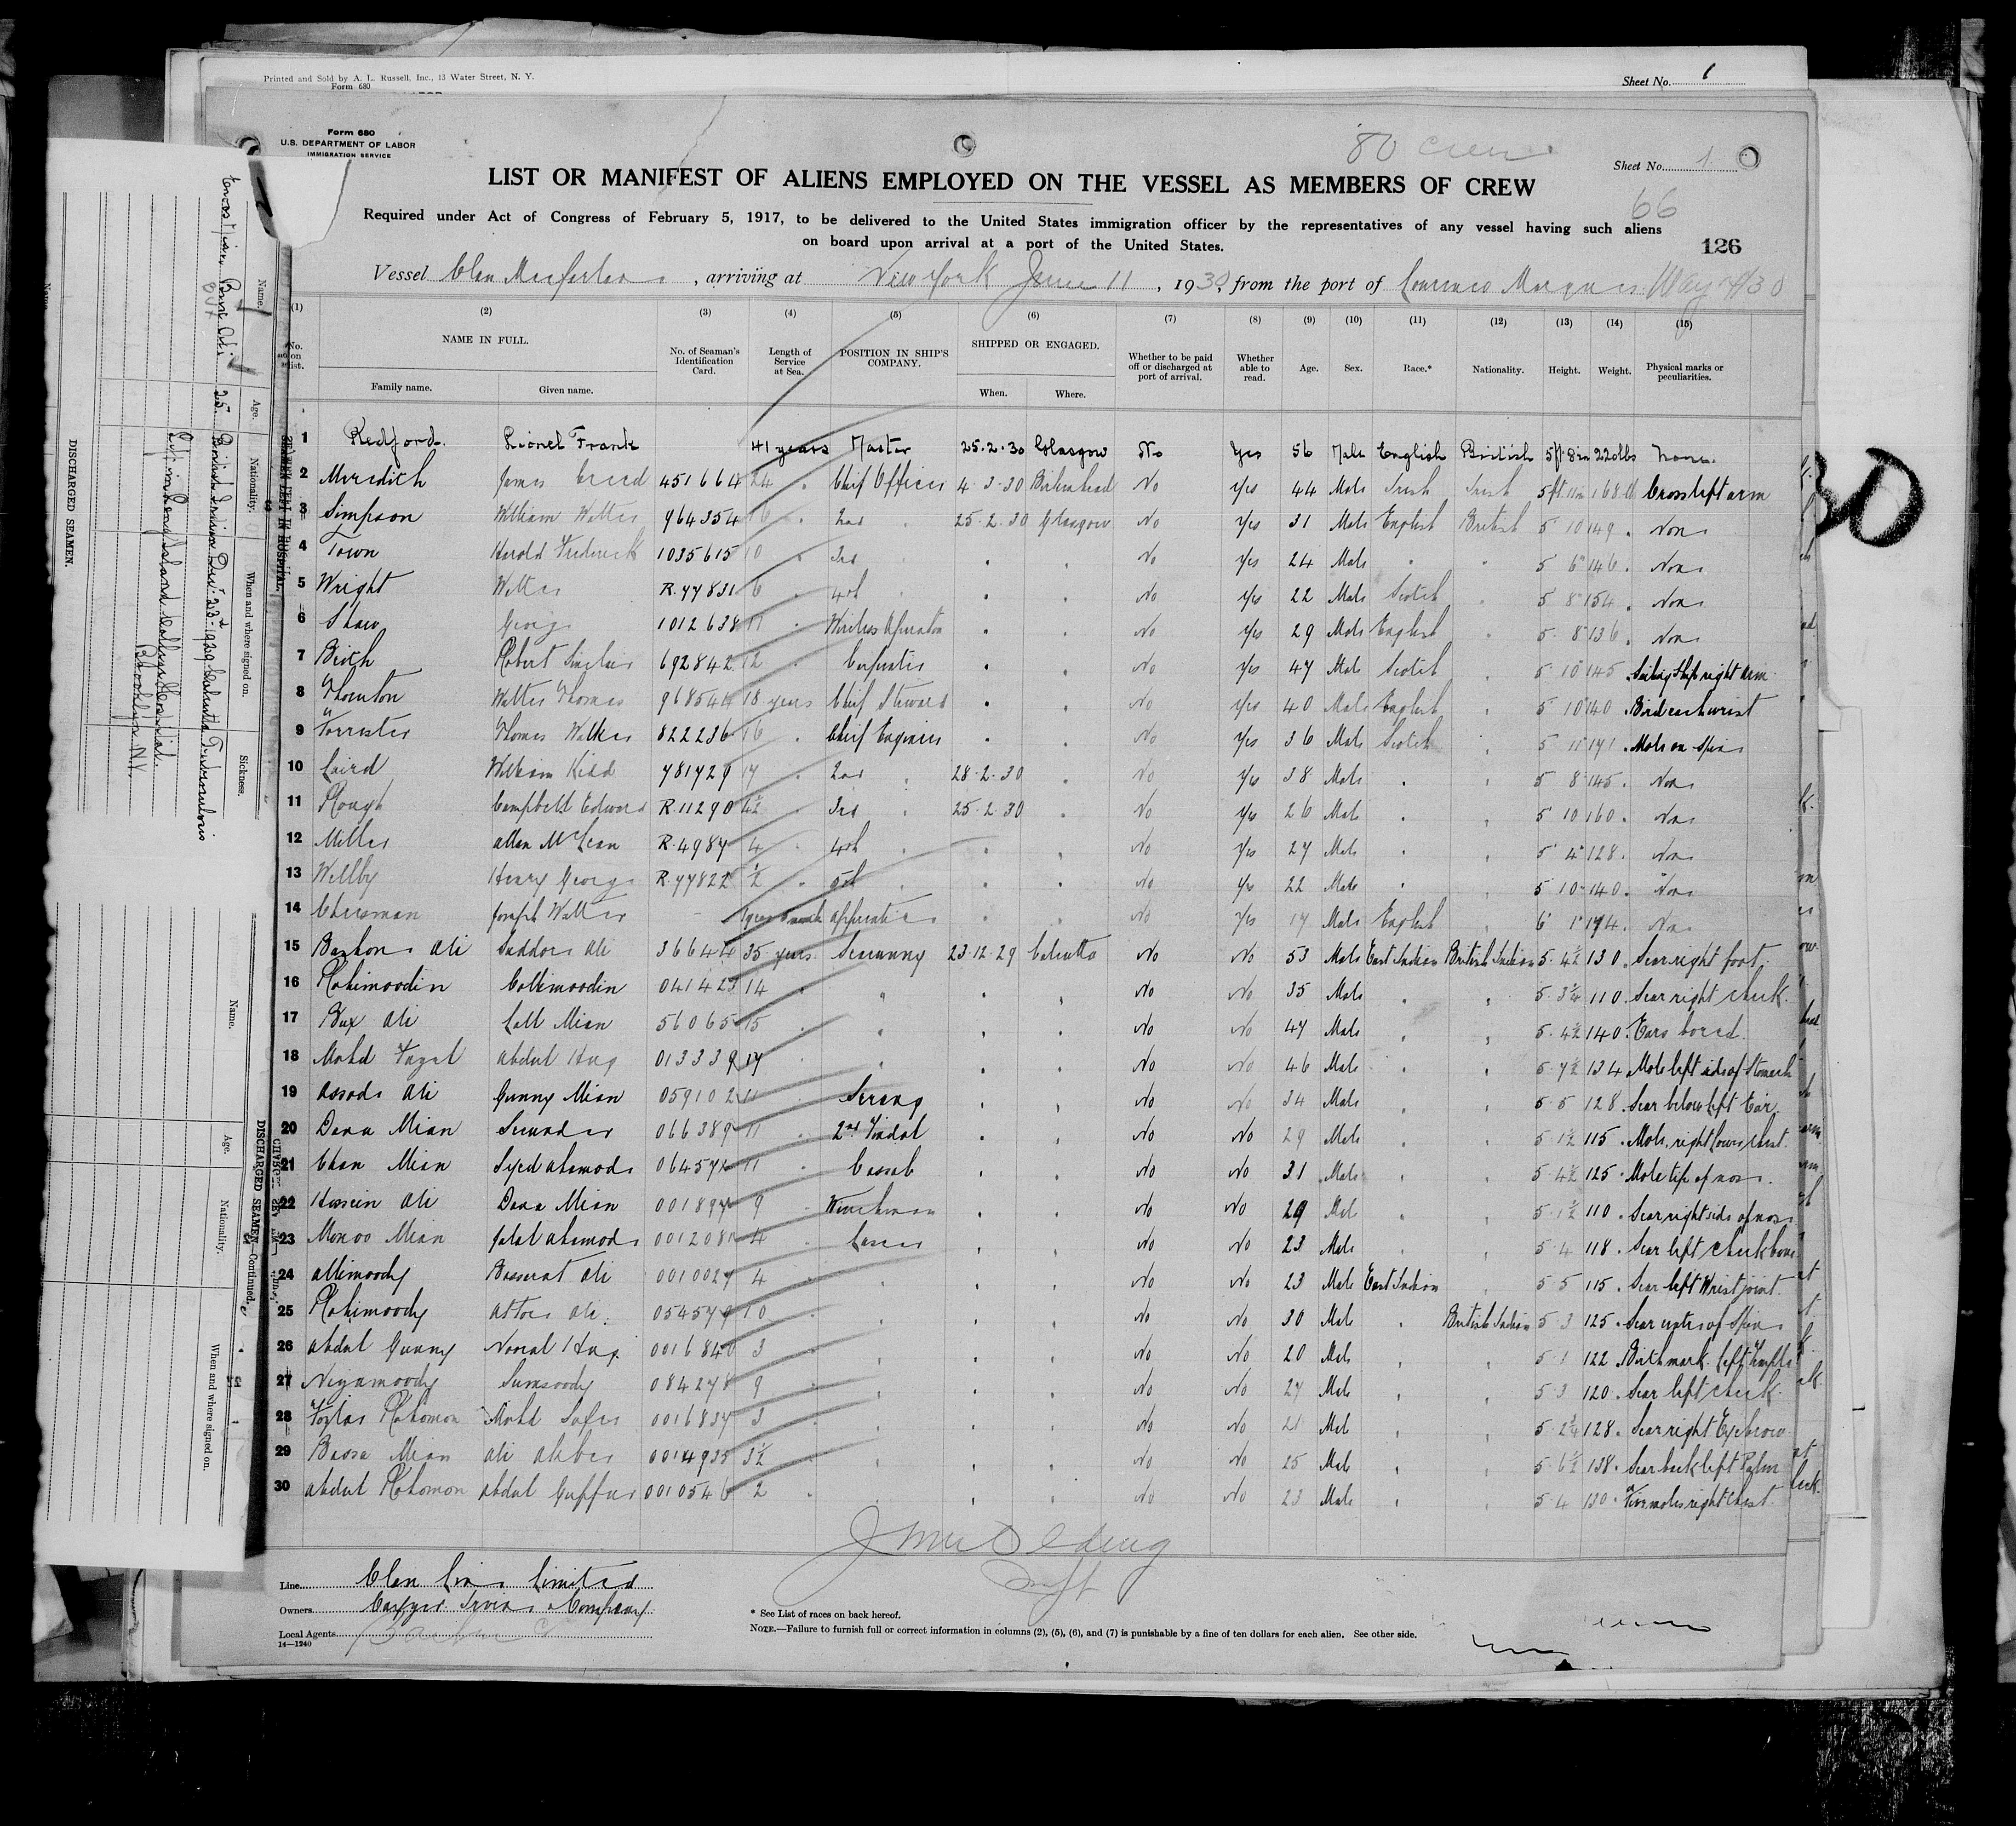 Printed and Sold by A. L. Russell, Inc., 13 Water Street, N. Y.
Form 680
Sheet No. 1
Form 680
U.S. DEPARTMENT OF LABOR
IMMIGRATION SERVICE
80 crew
Sheet No. 1.
LIST OR MANIFEST OF ALIENS EMPLOYED ON THE VESSEL AS MEMBERS OF CREW
66
Required under Act of Congress of February 5, 1917, to be delivered to the United States immigration officer by the representatives of any vessel having such aliens
on board upon arrival at a port of the United States.
126
Vessel Clan Macfarlane, arriving at New York June 11, 1930, from the port of Lourenco Marques May
(1) (2) (3) (4) (5) (6) (7) (8) (9) (10) (11) (12) (13) (14) (15)
No. on list. NAME IN FULL. Family name. Given name. No. of Seaman's Identification Card. Length of Service at Sea. POSITION IN SHIP'S COMPANY. SHIPPED OR ENGAGED. When. Where. Whether to be paid off or discharged at port of arrival. Whether able to read. Age. Sex. Race.* Nationality. Height. Weight. Physical marks or peculiarities.
1 Redford. Lionel Frank 41 years Master 25.2.30 Glasgow No Yes 56 Male English British 5ft 8in 220lbs None.
2 Meredith James Creed 451664 24 Chief Officer 4.3.30 Birkenhead No Yes 44 Male Irish Irish 5ft 11in 168 lb Cross left arm
3 Simpson William Walter 964354 2nd 25.2.30 Glasgow No Yes 31 Male English British 5 10 149 None
4 Town Harold Frederick 1035615 10 3rd No Yes 24 Male 5 6 146 None
5 Wright Walter R.77831 6 4th No Yes 22 Male Scotch 5 8 154 None
6 Shaw George 1012638 11 Wireless Operator No Yes 29 Male English 5 8 136 None
7 Birch Robert Sinclair 692842 12 Carpenter No Yes 47 Male Scotch 5 10 145 Sailing Ship right arm
8 Thornton Walter Thomas 18 years Chief Steward No Yes 40 Male English 5 10 140 Bird each wrist
9 Forrester Thomas Walker 822236 16 Chief Engineer No Yes 36 Male Scotch 5 11 171 Mole on Spine
10 Laird William Kidd 781729 17 2nd 28.2.30 No Yes 38 Male 5 8 145 None
11 Hough Campbell Edward R.11290 4½ 3rd 25.2.30 No Yes 26 Male 5 10 160 None
12 Miller Allan McLean R.4987 4 4th No Yes 27 Male 5 4 128 None
13 Wellby Henry George R.77822 ½ 5th No Yes 22 Male 5 10 140 None
14 Joseph Walter Apprentice No Yes 17 Male English 6 1 174 None
15 Ali Ali 36644 35 years Seacunny 23.12.29 Calcutta No No 53 Male East Indian British Indian 5 4½ 130 Scar right foot.
16 Rohimoodin Collimoodin 041423 14 No No 35 Male 5 3¼ 110 Scar right cheek.
17 Bux Ali Lall Mian 56065 15 No No 47 Male 5 4½ 140 Ears bored.
18 Mohd Fazel Abdul Huq 013339 17 No No 46 Male 5 7½ 134 Mole left side of Stomach
19 Assode Ali Gunny Mian 059102 11 Serang No No 34 Male 5 5 128 Scar below left Ear.
20 Dana Mian 066389 11 2nd Tindal No No 29 Male 5 1½ 115 Mole, right lower chest.
21 Chan Mian Syed Ahamode 11 Cassab No No 31 Male 5 4½ 125 Mole tip of nose.
22 Hossein Ali Dana Mian 9 Winchman No No 29 Male 5 1½ 110 Scar right side of nose
23 Monoo Mian Jalal Ahamode 0012081 4 Lascar No No 23 Male 5 4 118 Scar left cheek bone
24 Allimoody Basserat Ali 0010027 4 No No 23 Male East Indian 5 5 115 Scar left Wrist joint.
25 Rohimoody Attor Ali. 054579 10 No No 30 Male British Indian 5 3 125 Scar centre of Spine
26 Abdul Gunny Noorul Huq. 0016840 3 No No 20 Male 5 1 122 Birth mark left Temple
27 Nizamoody Sumsoody 084278 9 No No 27 Male 5 3 120 Scar left cheek.
28 Fozlar Rohomon Mohd Safer 0016837 3 No No 21 Male 5 2¼ 128 Scar right Eyebrow
29 Bassa Mian Ali Akber 0014935 3½ No No 25 Male 5 6½ 138 Scar back left Palm
30 Abdul Rohomon Abdul Guffur 0010546 2 No No 23 Male 5 4 130 Five moles right chest.
Line Clan Line Limited
Owners Cayzer Irvine & Company.
Local Agents
14—1240
* See List of races on back hereof.
NOTE.—Failure to furnish full or correct information in columns (2), (5), (6), and (7) is punishable by a fine of ten dollars for each alien. See other side.
SEAMEN LEFT IN HOSPITAL.
Name. Age. Nationality. When and where signed on. Sickness.
25 British Indian Dec. 23rd 1929 Calcutta Tuberculosis
Brooklyn N.Y.
DISCHARGED SEAMEN.
DISCHARGED SEAMEN—Continued.
Name. Age. Nationality. When and where signed on.
30